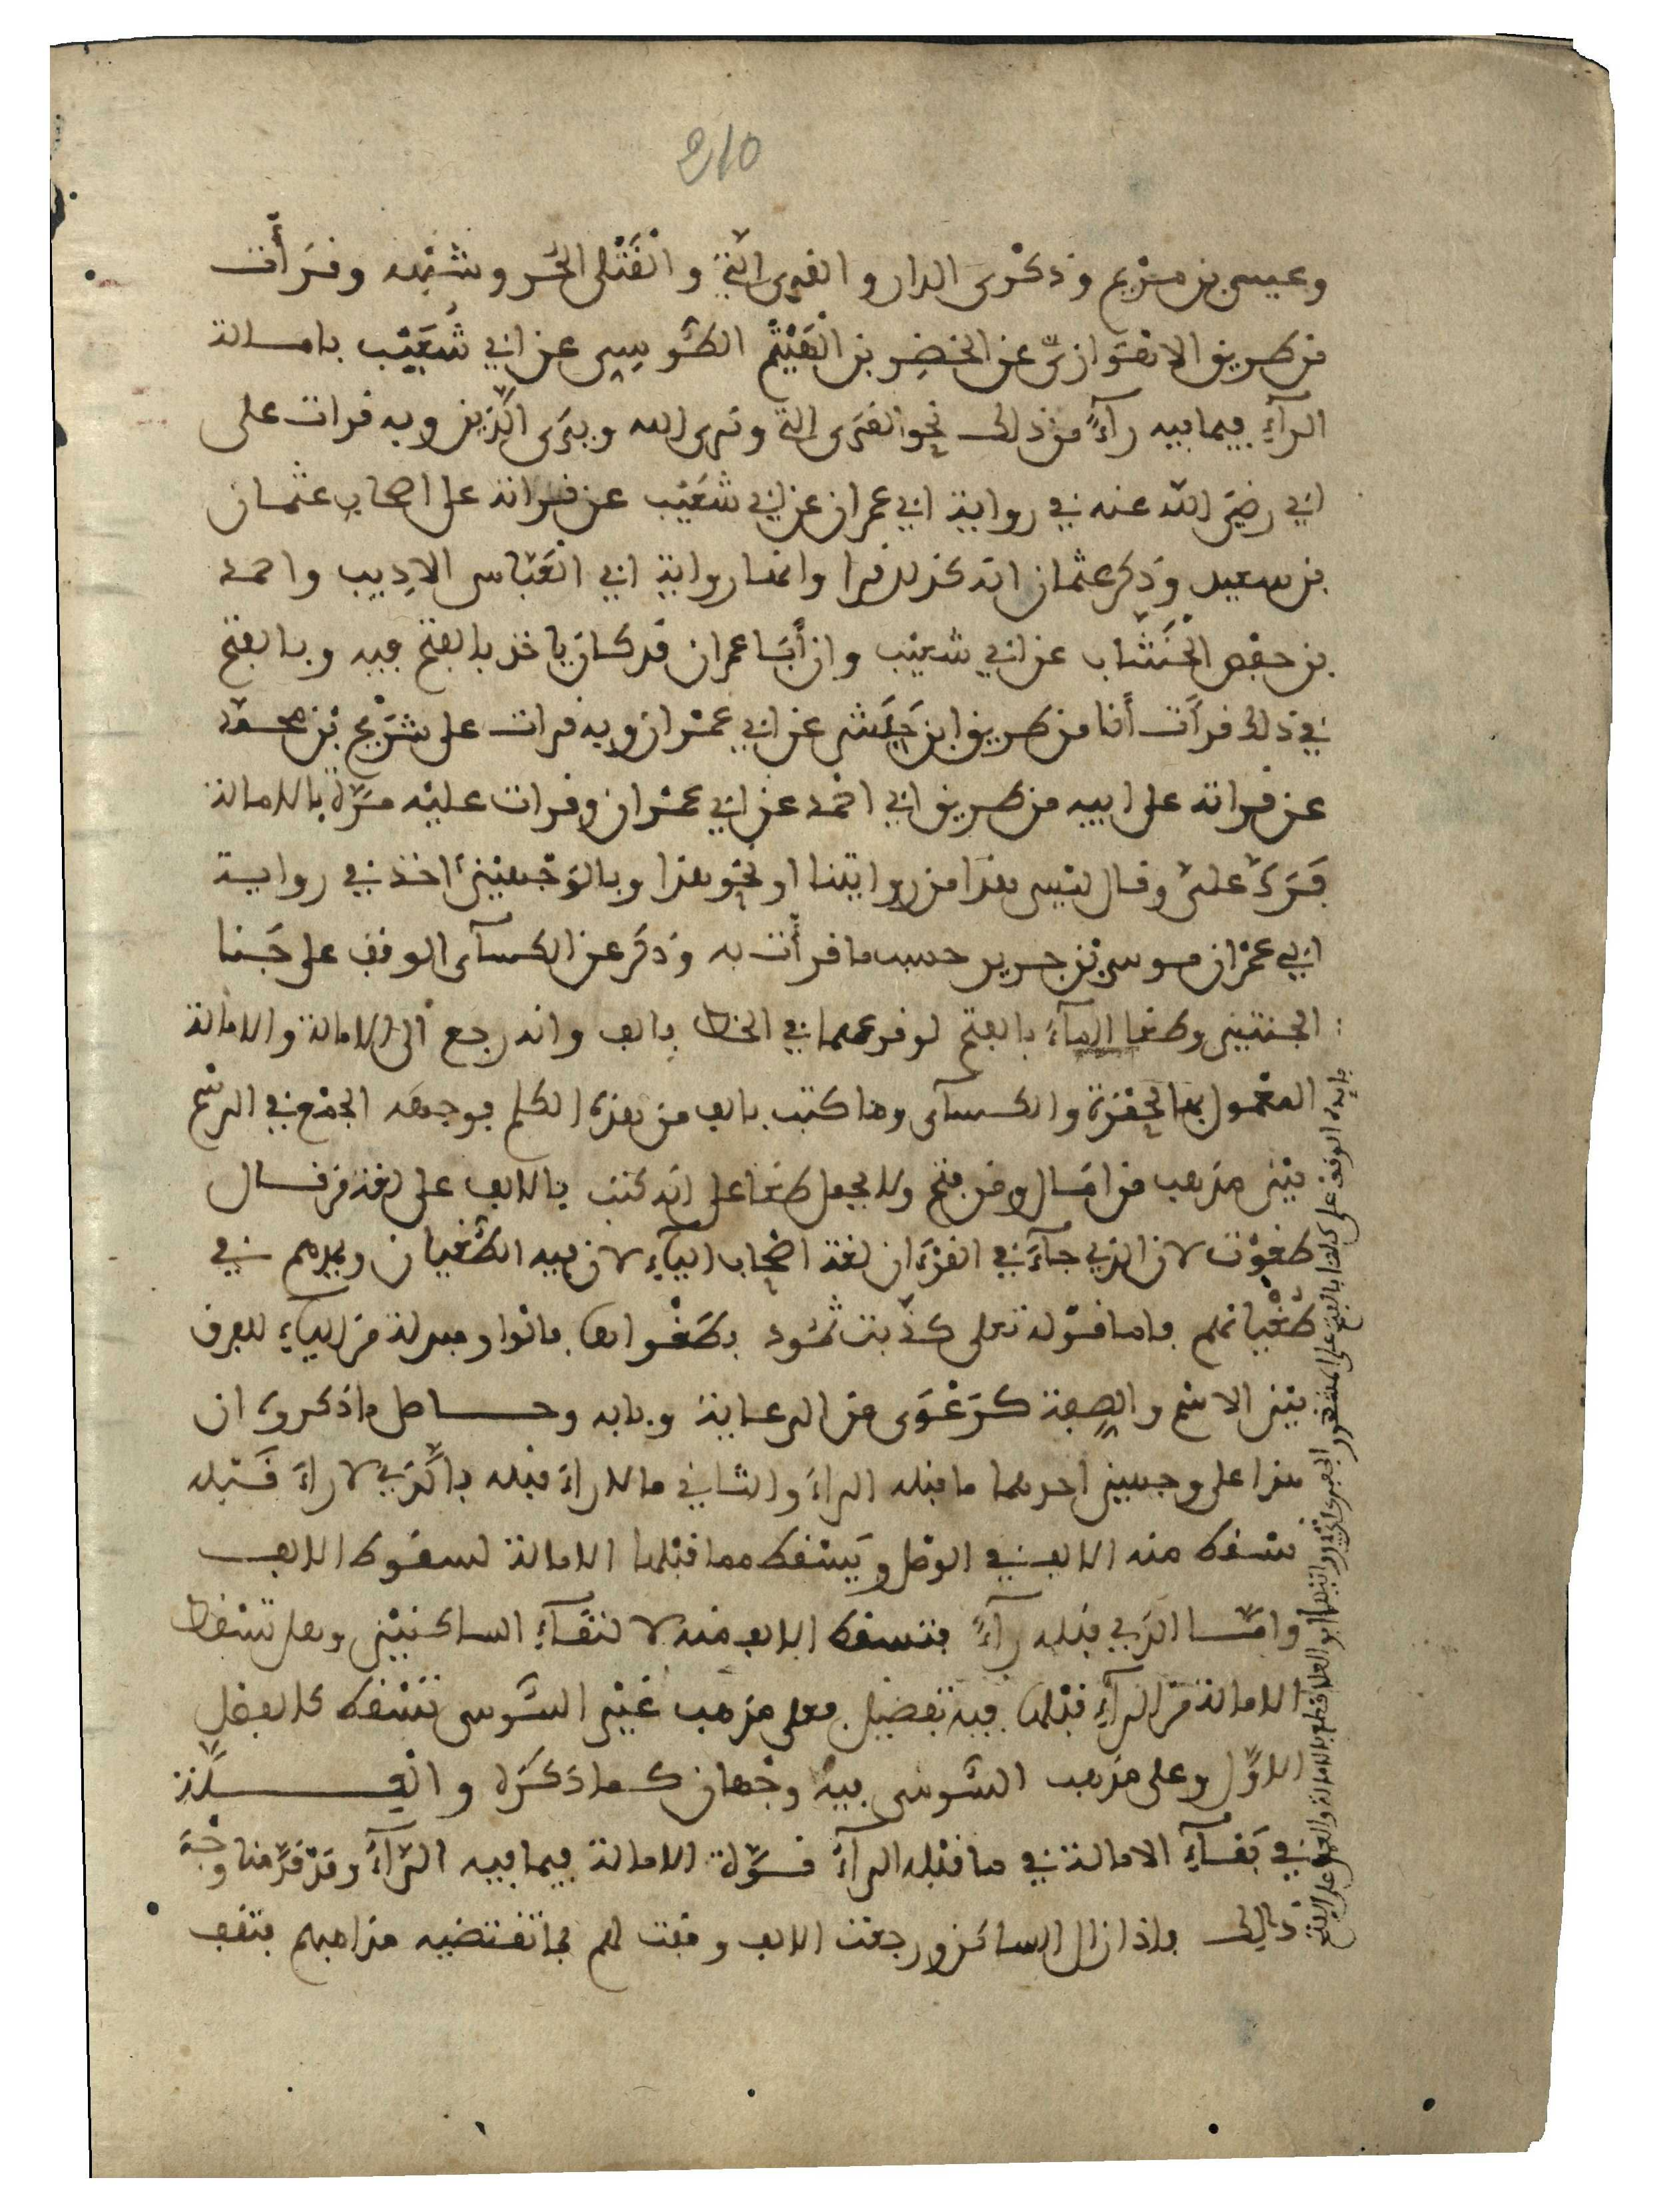 210
وعيسى بن مريم وذكرى الدار والقرى التي والقتلى الحر وشبهه وقرأت
من طريق الاهوازي عن الخضر بن الهيثم الطوسي عن ابي شعيب بامالة
الرآء فيما فيه رآء من ذلك نحو القرى التي ونرى الله ويرى الذين وبه قرات على
ابي رضي الله عنه في رواية ابي عمران عن ابي شعيب عن قراته على اصحاب عثمان
بن سعيد وذكر عثمان انه كذلك قرا وانها رواية ابي العباس الاديب واحمد
بن حفص الخشاب عن ابي شعيب وان أبا عمران قد كان ياخذ بالفتح فيه وبالفتح
في ذلك قرأت أنا من طريق ابن حبش عن ابي عمران وبه قرات على شريح بن محمد
عن قراته على ابيه من طريق ابي احمد عن ابي عمران وقرات عليه مرة بالامالة
فرد علي وقال ليس هذا من روايتنا او نحو هذا وبالوجهين أخذ في رواية
ابي عمران موسى بن جرير حسب ما قرأت به وذكر عن الكسآى الوقف على جنا
الجنتين وطغا المآء بالفتح لوقوعهما في الخط بالف وانه رجع الى الامالة والامالة
المعمول بها لحمزة والكسآى وما كتب بالف من هذه الكلم فوجهه الجمع في الرسم
بين مذهب من امال ومن فتح ولا يجعل طغا على انه كتب بالالف على لغة من قال
طغوت لان الذي جآء في القرءان لغة اصحاب اليآء لان فيه الطغيان ويمدهم في
طغيانهم فاما قوله تعلى كذبت ثمود بطغواها فالواو مبدلة من اليآء للفرق
بين الاسم والصفة كرعوى من الرعاية وبابه وحاصل ما ذكروه ان
هذا على وجهين احدهما ما قبله الرآء والثاني ما لا رآء قبله فالذي لا رآء قبله
تسقط منه الالف في الوصل ويسقط مما قبلها الامالة لسقوط الالف
وامّا الذي قبله رآء فتسقط الالف منه لالتقآء الساكنين وهل تسقط
الامالة من الرآء قبلها فيه تفصيل فعلى مذهب غير السوسي تسقط كالفصل
الاول وعلى مذهب السوسي فيه وجهان كما ذكره والعلة
في بقآء الامالة في ما قبله الرآء قوة الامالة فيما فيه الرآء وقد قدمنا وجه
ذلك فاذا زال الساكن ورجعت الالف وقفت لهم بما تقتضيه مذاهبهم فتقف